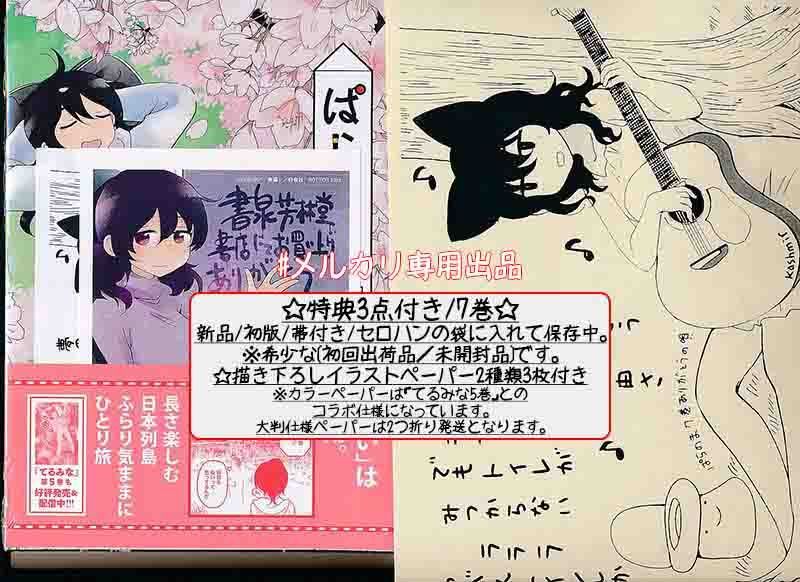 ぱら
書泉芳林堂
書店にてお買い上げ
ありがとう
#メルカリ専用出品
☆特典3点付き/7巻☆
新品/初版/帯付き/セロハンの袋に入れて保存中。
※希少な(初回出荷品/未開封品)です。
☆描き下ろしイラストペーパー2種類3枚付き
※カラーペーパーは『てるみな5巻』との
コラボ仕様になっています。
大判仕様ペーパーは2つ折り発送となります。
い」は
長さ楽しむ
日本列島
ふらり気ままに
ひとり旅
『てるみな』
第5巻も
好評発売&
配信中!!!
kashmir
でもトイレが
みつからない
ラララ